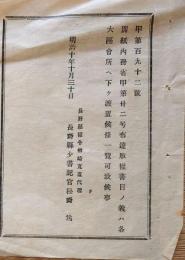 甲第百九十二號
別紙内務省甲第廿二号布達版權書目ノ義ハ各
大區會所ヘ下ケ渡置候條一覽可致候事
明治十年十月三十日
長野縣權令楢崎寛直代理
長野縣少書記官